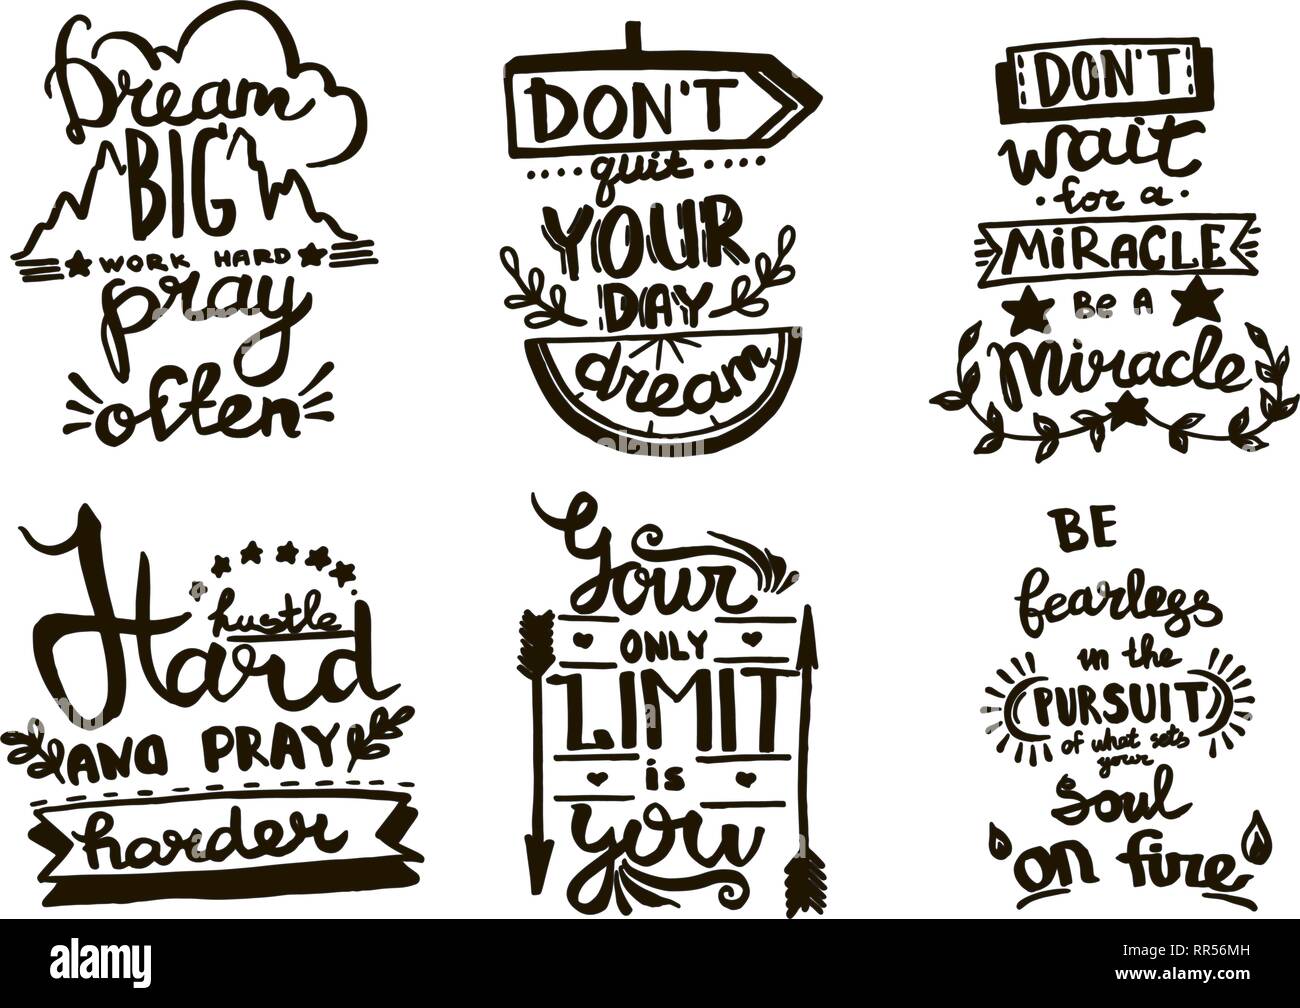 Dream
BIG
WORK HARD
pray
often
DON'T
quit
YOUR
DAY
dream
DON'T
wait
for a
MiRACLE
Be A
Miracle
hustle
Hard
AND PRAY
harder
Your
ONLY
LIMIT
is
you
BE
fearless
in the
PURSUIT
of what sets
your
Soul
on fire
alamy
a
a
a
a
alamy
Image ID: RR56MH
www.alamy.com